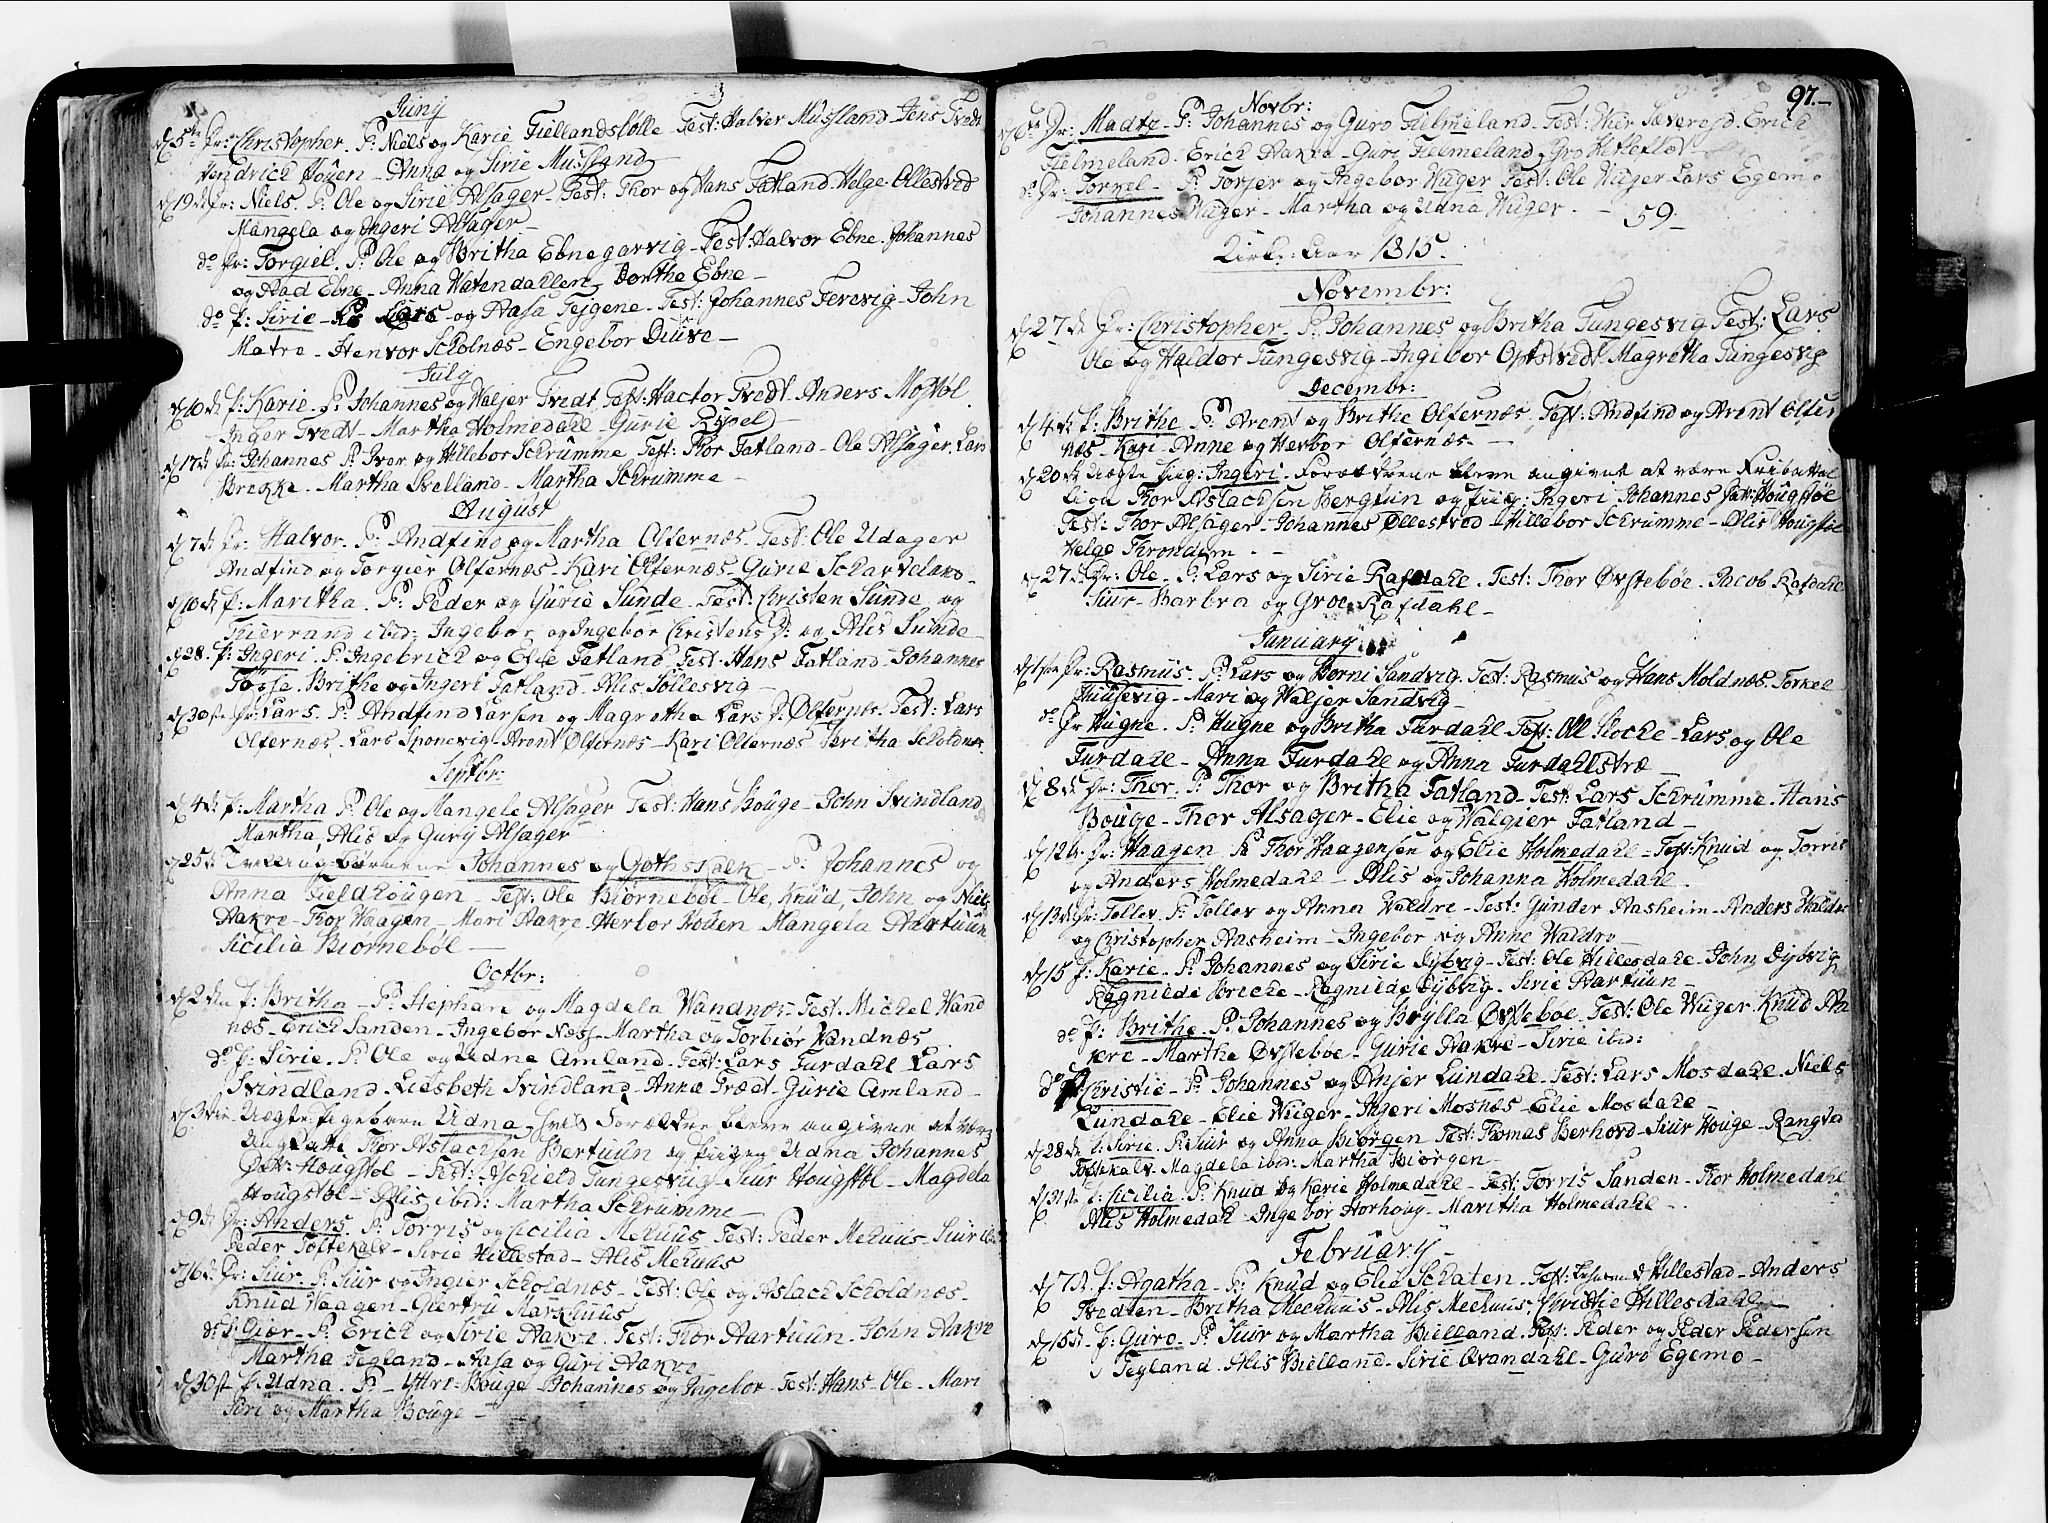 Juny
d 5te Dr: Christopher. P: Niels og Karie Fiellandstølle Test: Halver Musland Jens Tvedt
Hendrick Høyen - Anna og Sirie Musland
d 19de Dr: Niels. P: Ole og Sirie Alsager - Test: Thor og Hans Fatland Helge Ollestved
Mangela og Ingeri Alsager -
do Dr: Torgiel. P: Ole og Britha Ebnegarvig - Test: Halvor Ebne. Johannes
og Aad Ebne - Anna Vatendallen, Dorthe Ebne -
do P: Sirie - P: Lars - og Aasa Tejgene - Test: Johannes Ferevig - John
Matre - Henvor Scholnæs - Engebor Diuve -
July
d 10de P: Karie. P: Johannes og Valjer Tvedt, Test: Hactor Tvedt - Anders Mostøl.
Inger Tvedt - Martha Holmedahl - Gurie Rypel
d 17de Dr: Johannes P: Iver og Hillebor Schrumme Test: Thor Fatland - Ole Alsager, Lars
Brekke. Martha Svelland - Martha Schrumme -
August
d 7de Dr: Halvor. P: Andfind og Martha Olfernæs - Test: Ole Udager
Andfind og Torgier Olfernæs - Kari Olfernæs - Gurie Scharveland -
d 10de P: Maritha. P: Peder og Gurie Sunde. Test: Christen Sunde og
Tierrand ibid: Ingebor og Ingebor Christens D: og Alis Sunde -
d 28. P: Ingeri. P: Ingebrick og Elie Fatland. Test: Hans Fatland - Johannes
Tosse. Brithe og Ingeri Fatland - Alis Sollesvig -
d 30te Dr: Lars. P: Andfind Larsen og Magretha Lars D: Olfernæs. Test: Lars
Olfernæs - Lars Sponevig - Aront Olfernæs - Kari Olfernæs Britha Scholdnæs
Septbr:
d 4de P: Martha P: Ole og Mangele Alsager Test: Hans Bouge - John Svindland
Martha, Alis og Gury Alsager
d 25de Tvilling-Børnene Johannes og Gothskalk - P: Johannes og
Anna Fieldhougen - Test: Ole Biørnebøl - Ole, Knud, John og Niels
Aakre - Thor Haagen - Mari Aakre Herbor Høuen Mangela Aartuun
Sicilia Biørnebøl -
Octbr:
d 2den P: Britha - P: Stephan og Magdela Vandnæs - Test: Michel Vand
næs - Erich Sanden - Ingebor Næss - Martha og Torbiør Vandnæs
do P: Sirie. P: Ole og Udna Amland - Test: Lars Furdahl Lars
Svindland. Liesbeth Svindland - Anna Trædt - Gurie Amland -
d 3die Uægte Pigebarn Udna - hvis Forældre bleve angivne at være
Ungkarl Thor Aslachsen Bertuun og Pigen Udna Johannes
Datr: Hougstøl - Test: Aschield Tungesvig - Siur Hougstøl - Magdela
Hougstøl - Alis ibid: Martha Schrumme -
d 9de Dr: Anders. P: Torris og Cicilia Mehuus Test: Peder Mehuus - Siur ib:
Peder Toftekalv - Sirie Hillestad - Alis Mehuus
d 16de Dr: Siur. P: Siur og Ingier Scholdnæs - Test: Ole og Aslach Scholdnæs -
Knud Haagen - Giertru Markhuus
do P: Giør - P: Erich og Sirie Aakre. Test: Thor Aartuun - John Aakre
Martha Tegland - Aasa og Guri Aakre
d 30te P: Udna. P: - Yttre - Bouge Johannes og Ingebor - Test: Hans - Ole - Mari
Siri og Martha Bouge -
97. -
Novbr:
d 6te Dr: Madtz - P: Johannes og Guro Fielmeland - Test: Iver Særevold. Erich
Fielmeland - Erich Aakre - Guro Fielmeland - Gro Hetleflot
do Dr: Tornel - P: Torjer og Ingebor Wuger Test: Ole Wuger Lars Egemo
Johannes Wuger - Martha og Udna Wuger. - 59 -
Kirke: Aar 1815.
Novembr:
d 27de Dr: Christopher - P: Johannes og Britha Tungesvig Test: Lars
Ole og Haldor Tungesvig - Ingebor Opstvedt Magretha Tungesvig
Decembr:
d 4de P: Brithe P: Aront og Brithe Olfernæs, Test: Andfind og Aront Olfer
næs - Kari - Anne og Herbor Olfernæs. -
d 20de Uægte Pig: Ingeri - Forældrene bleve angivne at være Fribatal
lion Thor Aslachsen Bergtun og Pige: Ingeri Johannes Datr: Hougstøl
Test: Thor Alsager - Johannes Øllestved - Hillebor Schrumme - Alis Hougstøl
Helge Throndsen. -
d 27de Dr: Ole. P: Lars og Sirie Rafdahl. Test: Thor Øvstebøe. Jacob Rafdahl
Siur - Barbra og Groe Rafdahl -
January
d 1ste Dr: Rasmus. P: Lars og Horni Sandvig. Test: Rasmus og Hans Moldnæs. Torkel
Thiusevig - Mari og Valjer Sandvig -
do Dr Hugne. P: Hugne og Britha Furdahl - Test: Oll Slocke - Lars og Ole
Furdahl - Anna Furdahl og Anna Furdahlstræ
d 8de Dr: Thor. P: Thor og Britha Fatland - Test: Lars Schrumme. Hans
Bouge - Thor Alsager - Elie og Valgier Fatland -
d 12te Dr: Haagen P: Thor Haagensen og Elie Holmedahl - Test: Knud og Torris
og Anders Holmedahl - Alis og Johanna Holmedahl.
d 13de Dr: Tollev. P: Tollev og Anna Valdre - Test: Gunder Aasheim - Anders Haldre
og Christopher Aasheim - Ingebor og Anne Waldre
d 15 P: Karie. P: Johannes og Sirie Dybvig - Test: Ole Hillesdahl - John Dybvig
Ragnilde Brecke - Ragnilde Dybvig. Sirie Aartuun -
do P: Brithe. P: Johannes og Sylla Øvstebøe. Test: Ole Wuger Knud Aa
kre - Martha Øvstebøe - Gurie Aakre - Sirie ibd:
do P Christie - P: Johannes og Anjer Lundahl - Test: Lars Mosdahl. Niels
Lundahl - Elie Wuger - Ingeri Mosnæs - Elie Mosdahl -
d 28de P: Sirie. P: Siur og Anna Biorgen Test: Thomas Berhord - Siur Houge - Rangved
Toftekalv. Magdela ibid: Martha Biørgen -
d 31te P: Cicilia. P: Knud og Karie Holmedahl - Test: Torris Sanden - Thor Holmedahl
Alis Holmedahl - Ingebor Horhoug - Maritha Holmedahl -
February -
d 7de P: Agatha - P: Knud og Elie Schaten - Test: Hillestad - Anders
Tvedten - Britha Meehuus - Alis Meehuus, Christie Hillesdahl -
d 15de P: Guro - P: Siur og Martha Bielland - Test: Peder og Peder Pedersen
Tegland - Alis Bielland - Sirie Qvandahl - Guro Egemo -